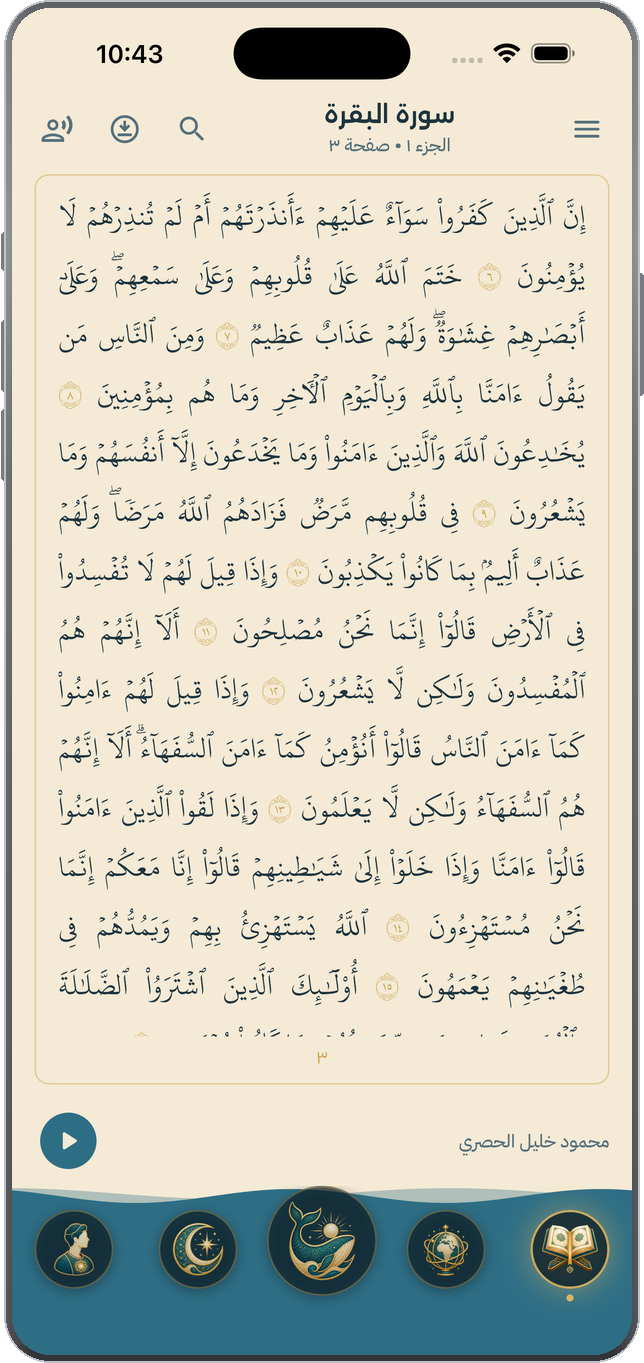 10:43
سورة البقرة
الجزء ١ • صفحة ٣
إِنَّ ٱلَّذِينَ كَفَرُوا۟ سَوَآءٌ عَلَيْهِمْ ءَأَنذَرْتَهُمْ أَمْ لَمْ تُنذِرْهُمْ لَا
يُؤْمِنُونَ ٦ خَتَمَ ٱللَّهُ عَلَىٰ قُلُوبِهِمْ وَعَلَىٰ سَمْعِهِمْ ۖ وَعَلَىٰٓ
أَبْصَـٰرِهِمْ غِشَـٰوَةٌ ۖ وَلَهُمْ عَذَابٌ عَظِيمٌ ٧ وَمِنَ ٱلنَّاسِ مَن
يَقُولُ ءَامَنَّا بِٱللَّهِ وَبِٱلْيَوْمِ ٱلْـَٔاخِرِ وَمَا هُم بِمُؤْمِنِينَ ٨
يُخَـٰدِعُونَ ٱللَّهَ وَٱلَّذِينَ ءَامَنُوا۟ وَمَا يَخْدَعُونَ إِلَّآ أَنفُسَهُمْ وَمَا
يَشْعُرُونَ ٩ فِى قُلُوبِهِم مَّرَضٌ فَزَادَهُمُ ٱللَّهُ مَرَضًا ۖ وَلَهُمْ
عَذَابٌ أَلِيمٌۢ بِمَا كَانُوا۟ يَكْذِبُونَ ١٠ وَإِذَا قِيلَ لَهُمْ لَا تُفْسِدُوا۟
فِى ٱلْأَرْضِ قَالُوٓا۟ إِنَّمَا نَحْنُ مُصْلِحُونَ ١١ أَلَآ إِنَّهُمْ هُمُ
ٱلْمُفْسِدُونَ وَلَـٰكِن لَّا يَشْعُرُونَ ١٢ وَإِذَا قِيلَ لَهُمْ ءَامِنُوا۟
كَمَآ ءَامَنَ ٱلنَّاسُ قَالُوٓا۟ أَنُؤْمِنُ كَمَآ ءَامَنَ ٱلسُّفَهَآءُ ۗ أَلَآ إِنَّهُمْ
هُمُ ٱلسُّفَهَآءُ وَلَـٰكِن لَّا يَعْلَمُونَ ١٣ وَإِذَا لَقُوا۟ ٱلَّذِينَ ءَامَنُوا۟
قَالُوٓا۟ ءَامَنَّا وَإِذَا خَلَوْا۟ إِلَىٰ شَيَـٰطِينِهِمْ قَالُوٓا۟ إِنَّا مَعَكُمْ إِنَّمَا
نَحْنُ مُسْتَهْزِءُونَ ١٤ ٱللَّهُ يَسْتَهْزِئُ بِهِمْ وَيَمُدُّهُمْ فِى
طُغْيَـٰنِهِمْ يَعْمَهُونَ ١٥ أُو۟لَـٰٓئِكَ ٱلَّذِينَ ٱشْتَرَوُا۟ ٱلضَّلَـٰلَةَ
٣
محمود خليل الحصري